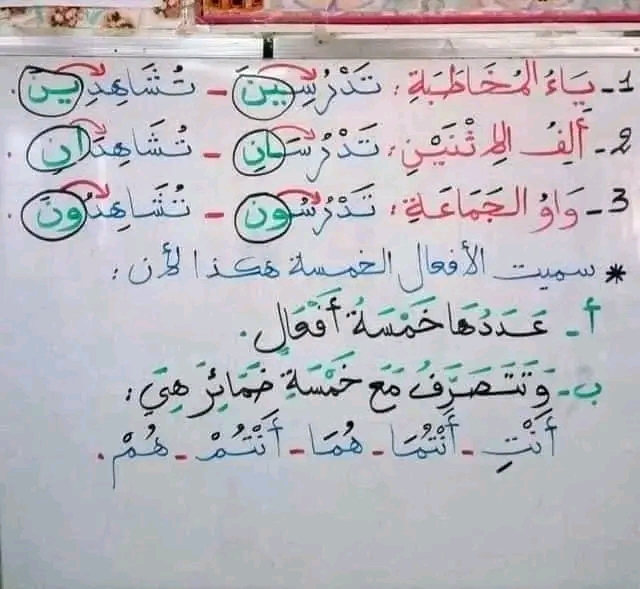 1- يَاءُ المُخَاطَبَةِ : تَدْرُسِينَ - تُشَاهِدِينَ .
2- أَلِفُ الاِثْنَيْنِ : تَدْرُسَانِ - تُشَاهِدَانِ .
3- وَاوُ الجَمَاعَةِ : تَدْرُسُونَ - تُشَاهِدُونَ .
* سميت الأفعال الخمسة هكذا لأن :
أ- عَدَدُهَا خَمْسَةُ أَفْعَالٍ .
ب- وَتَتَصَرَّفُ مَعَ خَمْسَةِ ضَمَائِرَ هِيَ :
أَنْتِ - أَنْتُمَا - هُمَا - أَنْتُمْ - هُمْ .